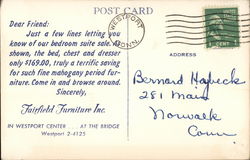 POST CARD
Dear Friend:
Just a few lines letting you
know of our bedroom suite sale. As
shown, the bed, chest and dresser
only $169.00, truly a terrific saving
for such fine mahogany period fur-
niture. Come in and browse around.
Sincerely,
Fairfield Furniture Inc.
IN WESTPORT CENTER . . . AT THE BRIDGE
Westport 2-4125
WESTPORT
CONN.
ADDRESS
Bernard
281 Main
Norwalk
Conn